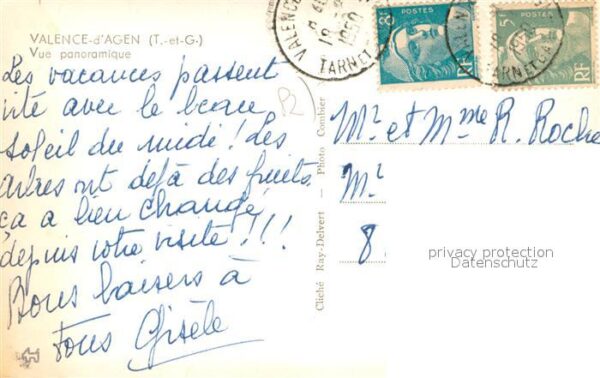 VALENCE-d'AGEN (T.-et-G.)
Vue panoramique
Les vacances passent
vite avec le beau
soleil du midi! Les
arbres ont déjà des fruits,
ça a bien changé
depuis votre visite!!!
Bons baisers à
tous Gisèle
Cliché Ray-Delvert - Photo Combier
VALENCE
18
1950
TARN ET
8F POSTES
RF
5F POSTES
RF
TARN ET GA
R
Mr et Mme R. Roche
Mr
8
privacy protection
Datenschutz